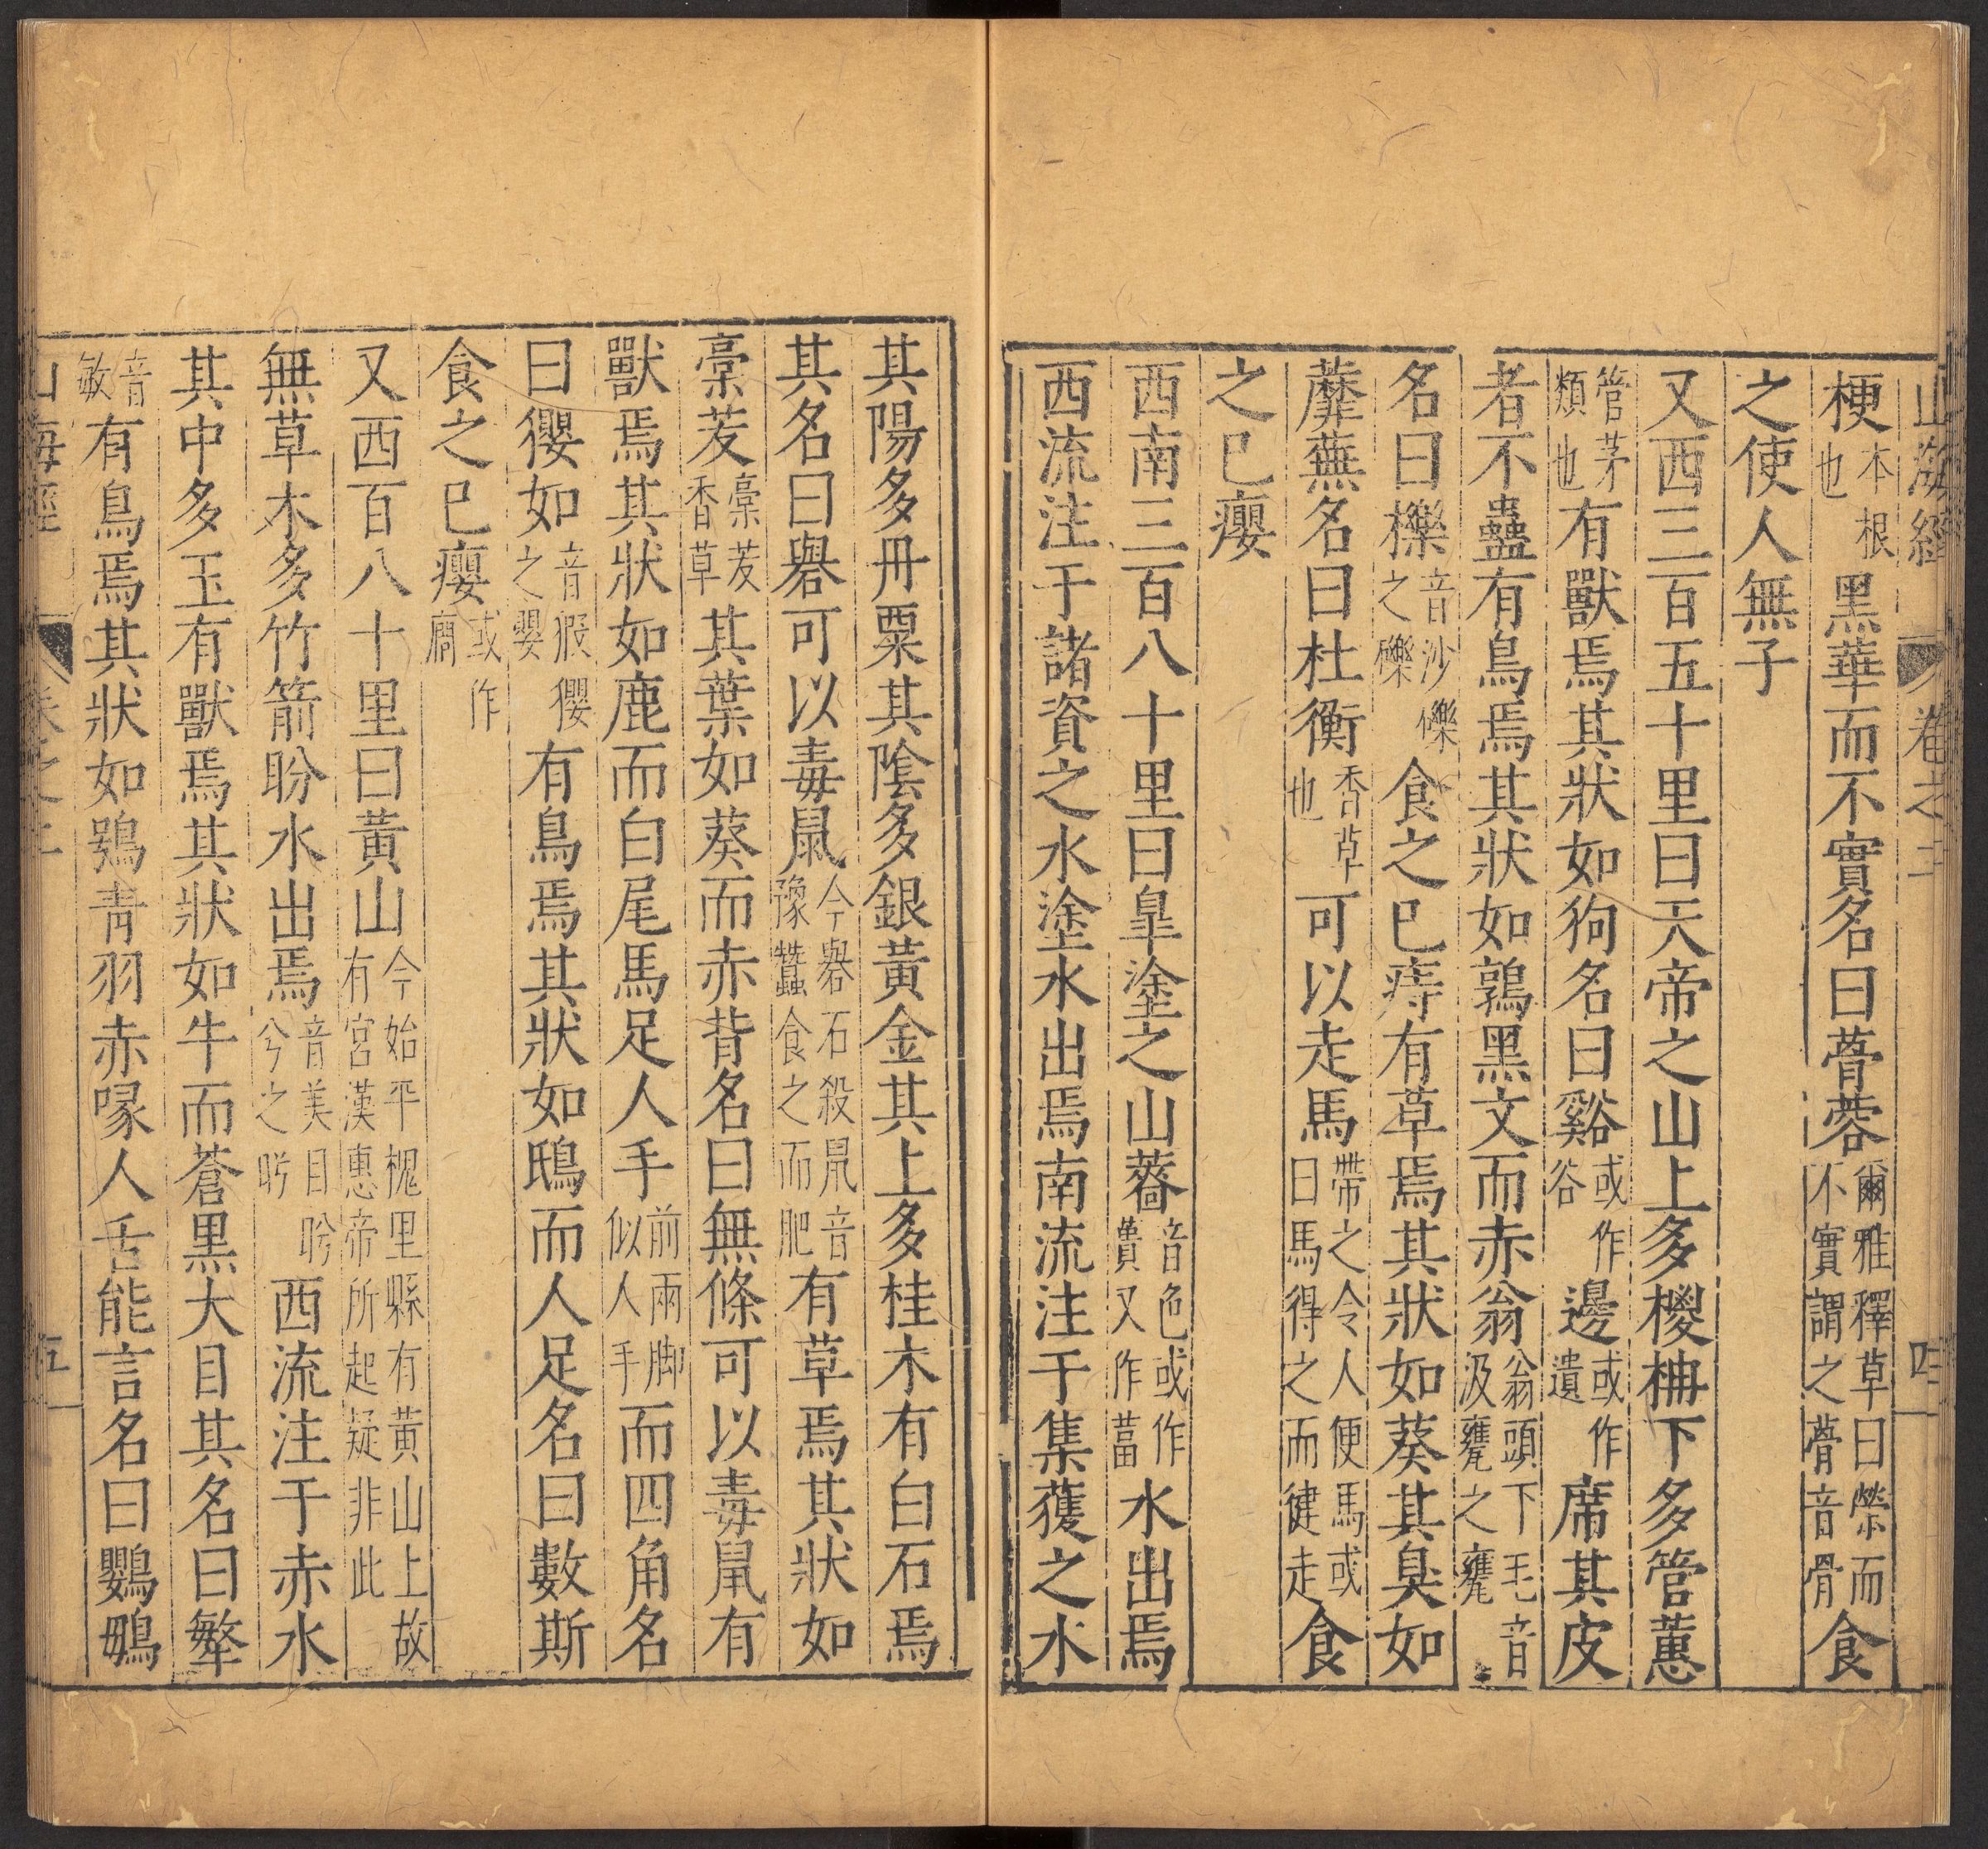 山海經 卷之二 四
梗本根也黑華而不實名曰蓇蓉爾雅釋草曰榮而不實謂之蓇音骨食
之使人無子
又西三百五十里曰天帝之山上多㯶枏下多管蕙
管茅類也有獸焉其狀如狗名曰谿或作谷邊或作遺席其皮
者不蠱有鳥焉其狀如鶉黑文而赤翁翁頭下毛音汲甕之甕
名曰櫟音沙礫之礫食之已痔有草焉其狀如葵其臭如
蘼蕪名曰杜衡香草也可以走馬帶之令人便馬或曰馬得之而健走食
之已癭
西南三百八十里曰皐塗之山薔音色或作蕢又作葍水出焉
西流注于諸資之水塗水出焉南流注于集獲之水
其陽多丹粟其陰多銀黃金其上多桂木有白石焉
其名曰礜可以毒鼠今礜石殺鼠音豫蠶食之而肥有草焉其狀如
稾茇稾茇香草其葉如葵而赤背名曰無條可以毒鼠有
獸焉其狀如鹿而白尾馬足人手前兩脚似人手而四角名
曰玃如音猳玃之嬰有鳥焉其狀如鴟而人足名曰數斯
食之已癭或作癇
又西百八十里曰黃山今始平槐里縣有黃山上故有宮漢惠帝所起疑非此
無草木多竹箭盼水出焉音美目盼兮之盼西流注于赤水
其中多玉有獸焉其狀如牛而蒼黑大目其名曰𢕟
音敏有鳥焉其狀如鴞青羽赤喙人舌能言名曰鸚䳇
山海經 卷之二 五